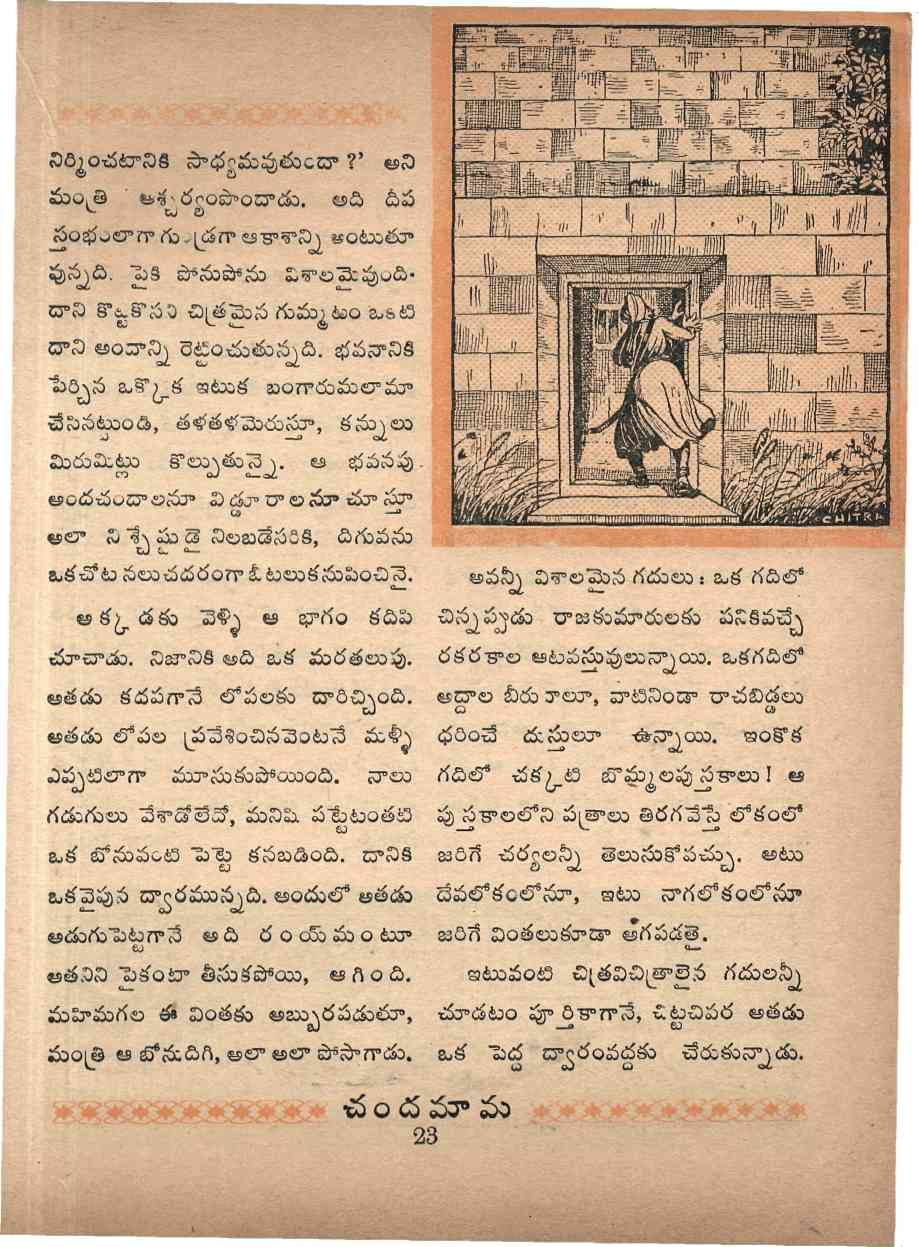 నిర్మించటానికి సాధ్యమవుతుందా ?' అని
మంత్రి ఆశ్చర్యంపొందాడు. అది దీప
స్తంభంలాగా గుండ్రడగా ఆకాశాన్ని అంటుతూ
వున్నది. పైకి పోనుపోను విశాలమైవుంది.
దాని కొట్టకొసను చిత్రమైన గుమ్మటం ఒకటి
దాని అందాన్ని రెట్టించుతున్నది. భవనానికి
పేర్చిన ఒక్కొక ఇటుక బంగారుమలామా
చేసినట్టుండి, తళతళమెరుస్తూ, కన్నులు
మిరుమిట్లు కొల్పుతున్నై. ఆ భవనపు
అందచందాలనూ విడ్డూరాలనూ చూస్తూ
అలా నిశ్చేష్టుడై నిలబడేసరికి, దిగువను
ఒకచోట నలుచదరంగా ఓటలుకనుపించినై.
అక్కడకు వెళ్ళి ఆ భాగం కదిపి
చూచాడు. నిజానికి అది ఒక మరతలుపు.
అతడు కదపగానే లోపలకు దారిచ్చింది.
అతడు లోపల ప్రవేశించినవెంటనే మళ్ళీ
ఎప్పటిలాగా మూసుకుపోయింది. నాలు
గడుగులు వేశాడోలేదో, మనిషి పట్టేటంతటి
ఒక బోనువంటి పెట్టె కనబడింది. దానికి
ఒకవైపున ద్వారమున్నది. అందులో అతడు
అడుగుపెట్టగానే అది రంయ్‌మంటూ
ఆతనిని పైకంటా తీసుకపోయి, ఆగింది.
మహిమగల ఈ వింతకు అబ్బురపడుతూ,
మంత్రి ఆ బోనుదిగి, అలా అలా పోసాగాడు.
CHITRA
అవన్నీ విశాలమైన గదులు : ఒక గదిలో
చిన్నప్పుడు రాజకుమారులకు పనికివచ్చే
రకరకాల ఆటవస్తువులున్నాయి. ఒకగదిలో
అద్దాల బీరువాలూ, వాటినిండా రాచబిడ్డలు
ధరించే దుస్తులూ ఉన్నాయి. ఇంకొక
గదిలో చక్కటి బొమ్మలపుస్తకాలు ! ఆ
పుస్తకాలలోని పత్రాలు తిరగవేస్తే లోకంలో
జరిగే చర్యలన్నీ తెలుసుకోవచ్చు. అటు
దేవలోకంలోనూ, ఇటు నాగలోకంలోనూ
జరిగే వింతలుకూడా అగపడతై.
ఇటువంటి చిత్రవిచిత్రాలైన గదులన్నీ
చూడటం పూర్తికాగానే, చిట్టచివర అతడు
ఒక పెద్ద ద్వారంవద్దకు చేరుకున్నాడు.
చందమామ
23